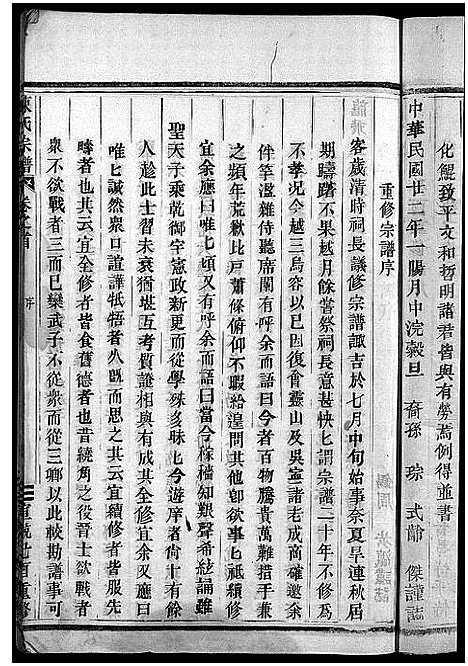 化鯉致平文和哲明諸君皆與有勞焉例得並書
中華民國廿二年一陽月中浣穀旦 裔孫 琮 式 傑謹誌
重修宗譜序
客歲清時祠長議修宗譜諏吉於七月中旬始事奈夏旱連秋居
期躊躇不果越月餘嘗祭祠長意甚怏乜謂宗譜二十年不修爲
不孝况今越三烏容以已因復會靈山及吳寗諸老成商確邀余
伴竽濫雜侍聽席闌有呼余而語曰今者百物騰貴萬難措手兼
之頻年荒歉比戸蕭條俯仰不暇給遑問其他乜祗續修
宜余應曰唯乜頃又有呼余而語曰當今稼穡知艱聲希絃誦雖
聖天子乘乾御宇憲政新更而從學殊多昧乜今遊庠者尙十有餘
人趁此士習未衰猶堪互考質證相與有成其全修宜余又應曰
唯乜誠然衆口諠譁牴牾者久旣而思之其云宜續修者皆服先
疇者也其云宜全修者皆食舊德者也昔繞角之役晉士欲戰者
衆不欲戰者三而已欒武子不從衆而從三卿以此較勘譜事可
陳氏宗譜 卷之首 序